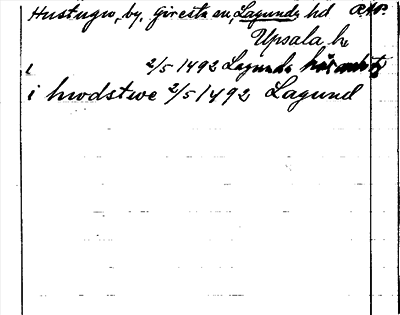 Hustugw, by, Giresta sn, Lagunda hd
Upsala l.
i 2/5 1492 Lagunda
i hwdstwe 2/5 1492 Lagund